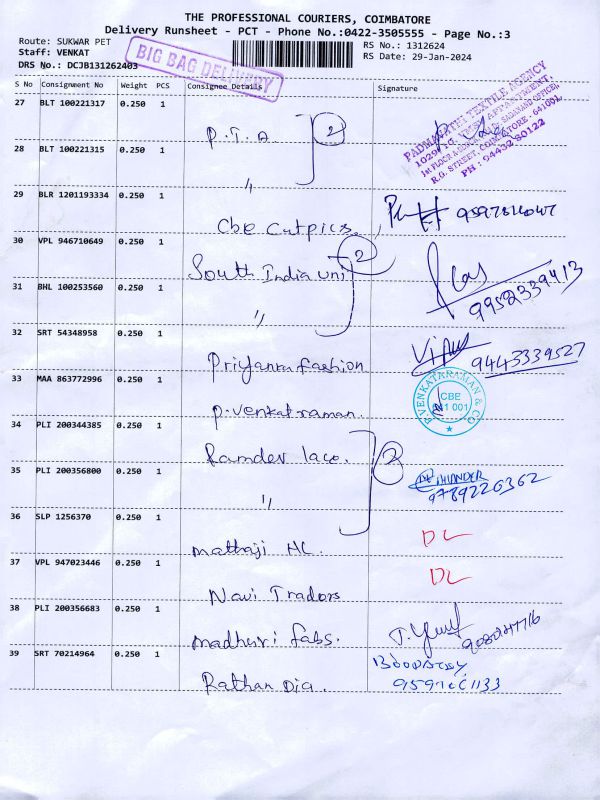 THE PROFESSIONAL COURIERS, COIMBATORE
Delivery Runsheet - PCT - Phone No.:0422-3505555 - Page No.:3
Route: SUKWAR PET
RS No.: 1312624
Staff: VENKAT
RS Date: 29-Jan-2024
DRS No.: DCJB131262403
BIG BAG DELIVERY
S No Consignment No Weight PCS Consignee Details Signature
27 BLT 100221317 0.250 1
P.T.A 2
PADMAVATHI TEXTILE AGENCY
R.G. STREET, COIMBATORE - 641001.
PH : 94432 80122
28 BLT 100221315 0.250 1
"
29 BLR 1201193334 0.250 1
Cbe Cutpics.
30 VPL 946710649 0.250 1
South India uni 2
31 BHL 100253560 0.250 1
"
9952339413
32 SRT 54348958 0.250 1
Priyanka fashion
9443339527
33 MAA 863772996 0.250 1
P. Venkatraman.
P. VENKATARAMAN & CO
CBE
641 001
34 PLI 200344385 0.250 1
Ramdev lace. 2
35 PLI 200356800 0.250 1
"
9789226362
36 SLP 1256370 0.250 1
Mathaji HC.
DL
37 VPL 947023446 0.250 1
Navi Tradors
DL
38 PLI 200356683 0.250 1
Madhuri fabs.
39 SRT 70214964 0.250 1
Rathan Dia.